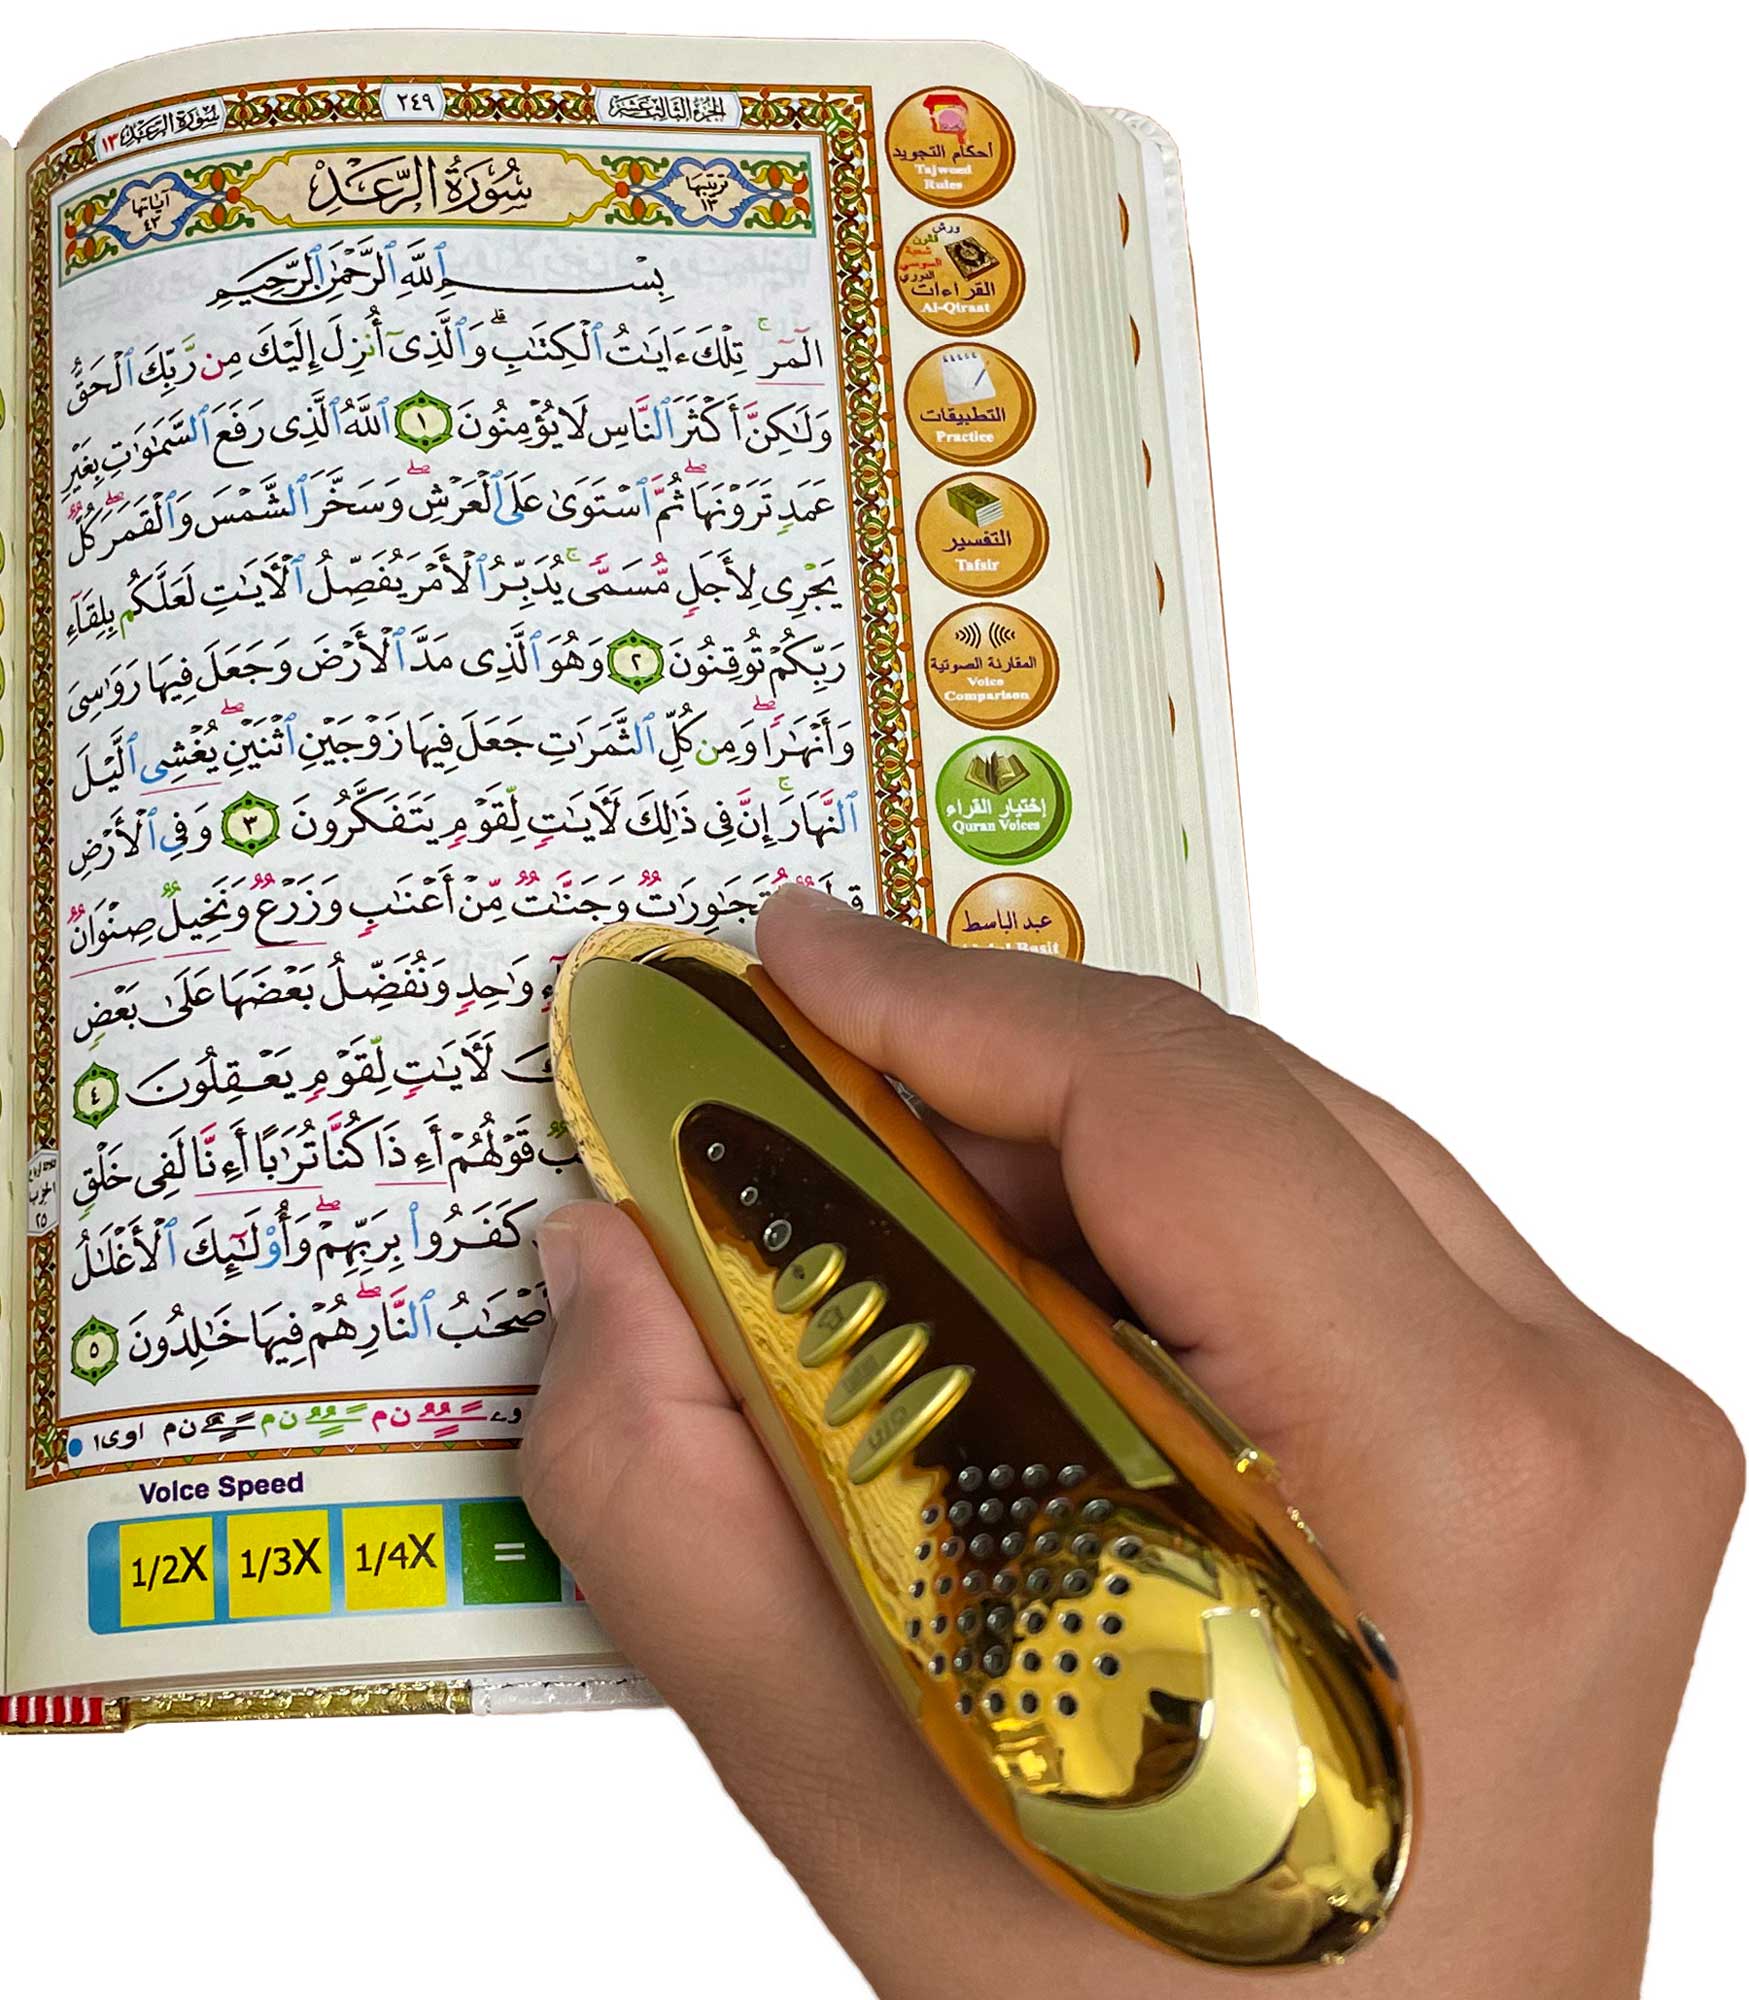 الجزء الثالث عشر
٢٤٩
سورة الرعد ١٣
ترتيبها ١٣
سُورَةُ الرَّعْدِ
آياتها ٤٣
بِسْمِ ٱللَّهِ ٱلرَّحْمَٰنِ ٱلرَّحِيمِ
الٓمٓرۚ تِلْكَ ءَايَٰتُ ٱلْكِتَٰبِۗ وَٱلَّذِىٓ أُنزِلَ إِلَيْكَ مِن رَّبِّكَ ٱلْحَقُّ
وَلَٰكِنَّ أَكْثَرَ ٱلنَّاسِ لَا يُؤْمِنُونَ ١ ٱللَّهُ ٱلَّذِى رَفَعَ ٱلسَّمَٰوَٰتِ بِغَيْرِ
عَمَدٍ تَرَوْنَهَاۖ ثُمَّ ٱسْتَوَىٰ عَلَى ٱلْعَرْشِۖ وَسَخَّرَ ٱلشَّمْسَ وَٱلْقَمَرَۖ كُلٌّ
يَجْرِى لِأَجَلٍ مُّسَمًّىۚ يُدَبِّرُ ٱلْأَمْرَ يُفَصِّلُ ٱلْءَايَٰتِ لَعَلَّكُم بِلِقَآءِ
رَبِّكُمْ تُوقِنُونَ ٢ وَهُوَ ٱلَّذِى مَدَّ ٱلْأَرْضَ وَجَعَلَ فِيهَا رَوَٰسِىَ
وَأَنْهَٰرًاۖ وَمِن كُلِّ ٱلثَّمَرَٰتِ جَعَلَ فِيهَا زَوْجَيْنِ ٱثْنَيْنِۖ يُغْشِى ٱلَّيْلَ
ٱلنَّهَارَۚ إِنَّ فِى ذَٰلِكَ لَءَايَٰتٍ لِّقَوْمٍ يَتَفَكَّرُونَ ٣ وَفِى ٱلْأَرْضِ
مُّتَجَٰوِرَٰتٌ وَجَنَّٰتٌ مِّنْ أَعْنَٰبٍ وَزَرْعٌ وَنَخِيلٌ صِنْوَانٌ
وَٰحِدٍ وَنُفَضِّلُ بَعْضَهَا عَلَىٰ بَعْضٍ
لَءَايَٰتٍ لِّقَوْمٍ يَعْقِلُونَ ٤
قَوْلُهُمْ أَءِذَا كُنَّا تُرَٰبًا أَءِنَّا لَفِى خَلْقٍ
كَفَرُوا۟ بِرَبِّهِمْۖ وَأُو۟لَٰٓئِكَ ٱلْأَغْلَٰلُ
أَصْحَٰبُ ٱلنَّارِۖ هُمْ فِيهَا خَٰلِدُونَ ٥
ن م ن م ن م اوى١
Voice Speed
1/2X 1/3X 1/4X =
أحكام التجويد
Tajweed
Rules
ورش
قالون
شعبة
السوسي
الدوري
القراءات
Al-Qiraat
التطبيقات
Practice
التفسير
Tafsir
المقارنة الصوتية
Voice
Comparison
إختيار القراء
Quran Voices
عبد الباسط
Basit